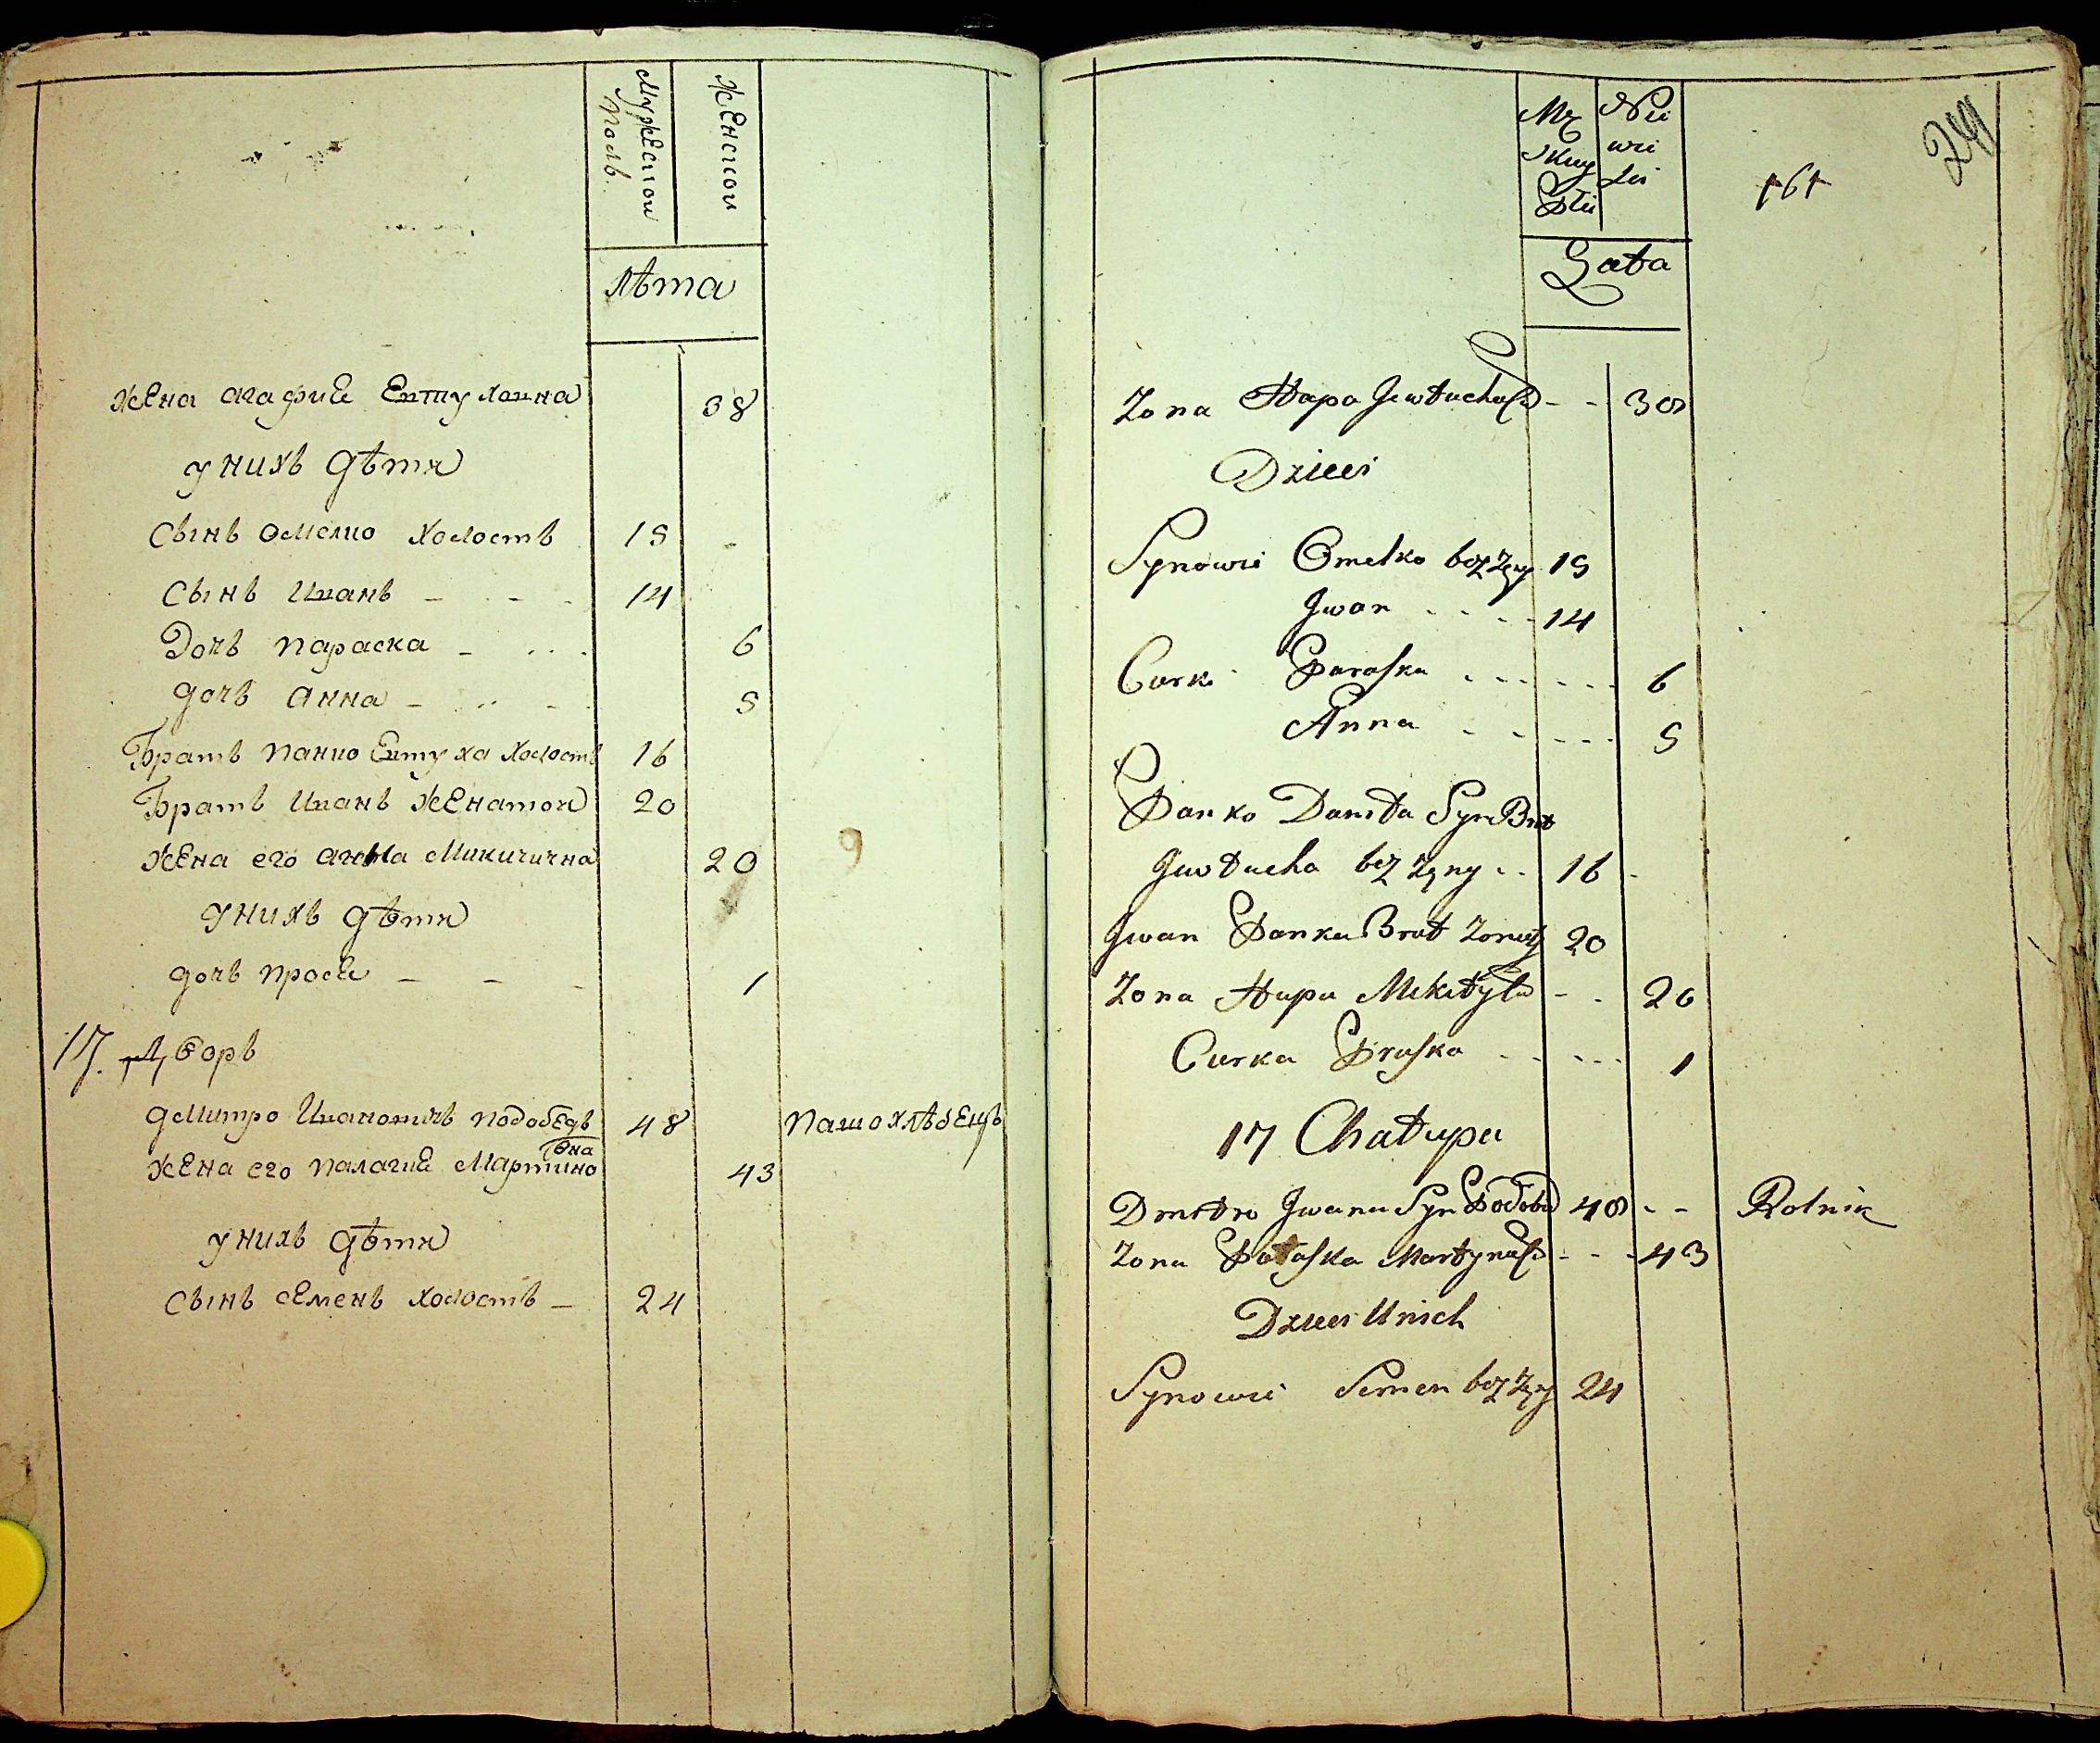 Мужескои Женскои
полъ.
лѣта
жена агафие Евтухонна 38
у нихъ дѣти
сынъ омелко холостъ 15
сынъ Иванъ - - - 14
Дочъ параска - ... 6
дочъ анна - .. - 5
братъ панко Евтуха холостъ 16
братъ Иванъ женатои 20
жена его анна Микитична 20
у нихъ дѣти
дочъ просе - - - 1
17. Дворъ
дмитро Ивановичъ подобедъ 48 пашохлѣбецъ
жена его палагие Мартиновна 43
у нихъ дѣти
сынъ семенъ холостъ - 24
241
161
Męskiey Niewie
Płci
Lata
Zona Hapa Jewtucha - - 38
Dzieci
Synowie Omelko bez żeny 15
Jwan . . . . 14
Curki Paraska . . . . . . 6
Anna . . . . . . 5
Panko Danita Syn Brat
Jewtucha bez żeny .. 16
Jwan Panka Brat żonaty 20
Zona Hapa Mikityła - - 20
Curka Praska . . . . . 1
17 Chałupa
Dmitro Jwana Syn Podobed 48 - - Rolnik
Zona Pałaska Martyna - - - 43
Dzieci Unich
Synowie Semen bez żeny 24